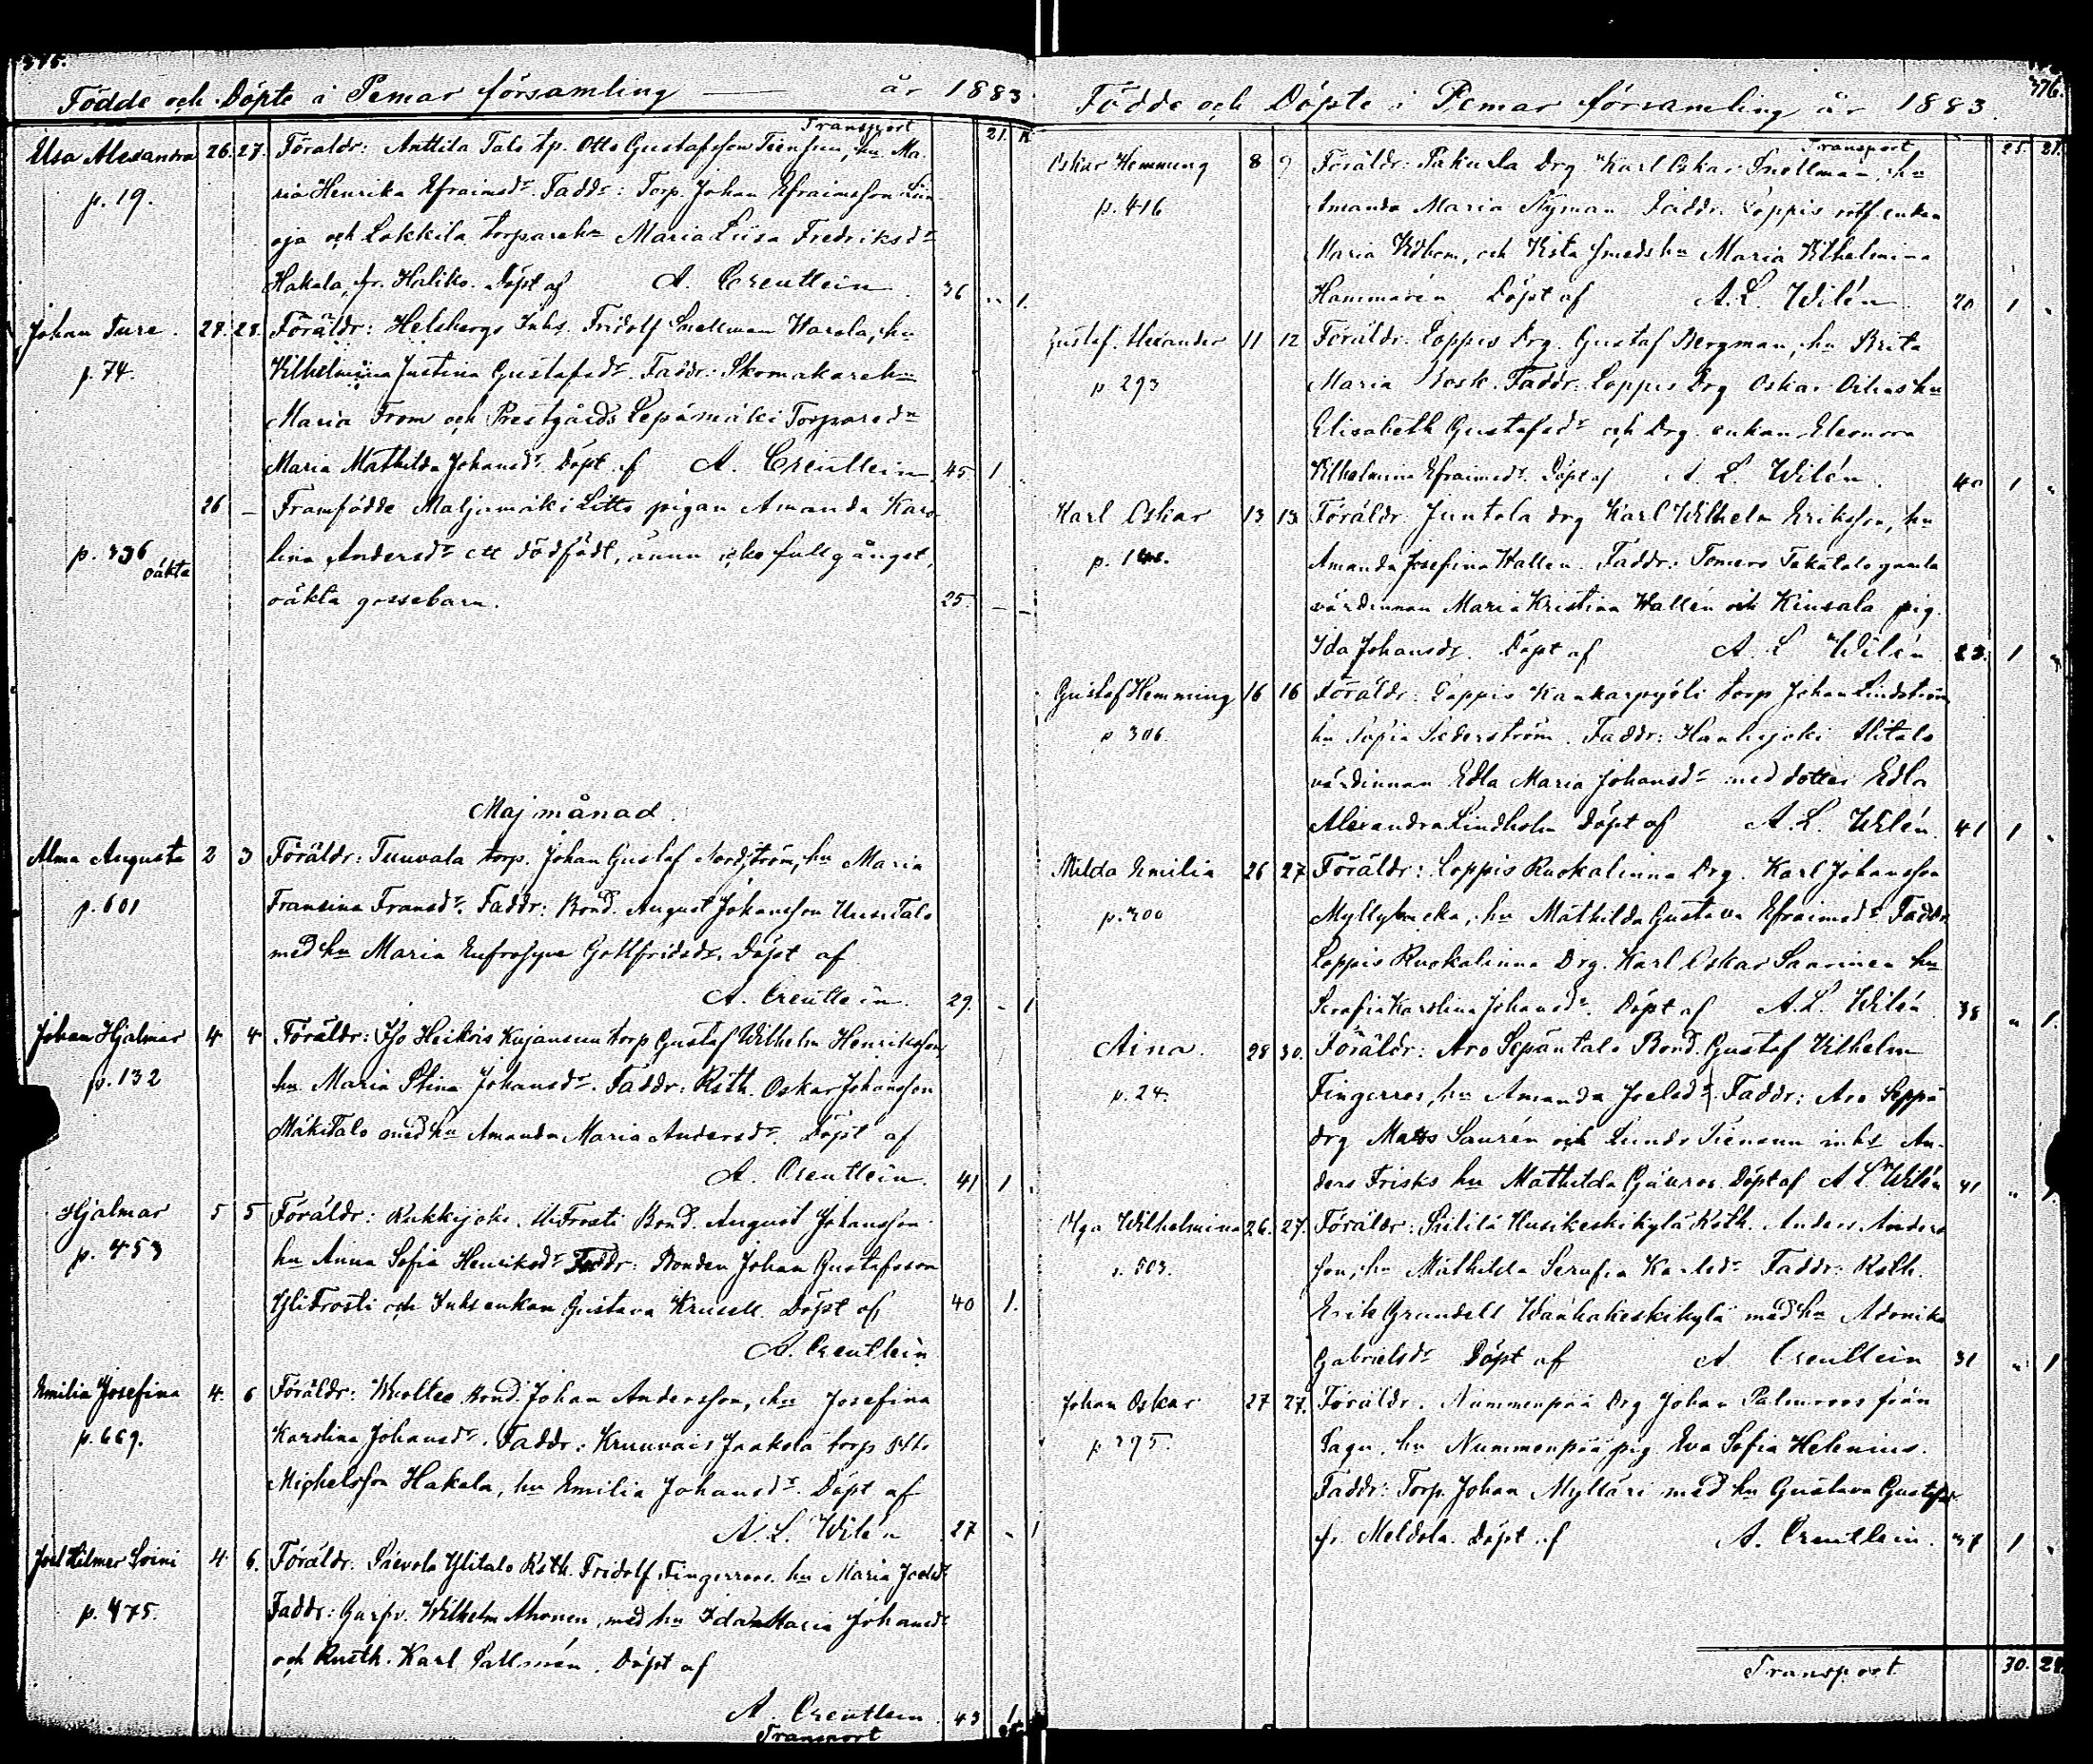 375.
Födde och Döpte i Pemar församling — år 1883
Transport 21.
26. 27. Föräldr: Anttila Talo tp. Otto Gustafsson hn Ma-
p. 19. ria Henrika Efraimsdr. Faddr: Torp. Johan Efraimsson
oja och Lakkila torparehn Maria Lisa Fredriksdr
Hakala, fr. Haliko. Döpt af A. Creutlein 36 " 1.
Johan Ture. 28. 28. Föräldr: Helsbergs Inhs. Fridolf Snellman Harola, hn
p. 74. Vilhelmina Justina Gustafsdr. Faddr: Skomakarehn
Maria From och Prestgårds Lepämäki Torparedn
Maria Mathilda Johansdr. Döpt af A. Creutlein 45 1
26 — Framfödde Maljamäki Litto pigan Amanda Karo-
p. 336 lina Andersdr ett dödfödt, ännu icke fullgånget,
oäkta oäkta gossebarn. 25. — —
Maj månad.
Alma Augusta 2 3 Föräldr: Tuuvala torp. Johan Gustaf Nordström, hn Maria
p. 601 Fransina Fransdr. Faddr: Bond. August Johansson Uusitalo
med hn Maria Eufrosyne Gottfridsdr. Döpt af
A. Creutlein. 29. " 1
Johan Hjalmar 4 4 Föräldr: Iso Heikois Kujansuu torp Gustaf Wilhelm Henriksson
p. 132 hn Maria Stina Johansdr. Faddr: Rsth. Oskar Johansson
Mäkitalo med hn Amanda Maria Andersdr. Döpt af
A. Creutlein. 41 1
Hjalmar 5 5 Föräldr: Kukkijoki Bond. August Johansson
p. 453 hn Anna Sofia Henriksdr Faddr: Bonden Johan Gustafsson
YliFrosti och Inhsenkan Gustava Krusell. Döpt af 40 1.
A. Creutlein
Emilia Josefina 4 6 Föräldr: Bond. Johan Andersson, hn Josefina
p. 669. Karolina Johansdr. Faddr: Kruuvais Jaakola torp Otto
Michelsson Hakala, hn Emilia Johansdr. Döpt af
A. L. Wilén 27 " 1
Joel Hilmer Soini 4 6. Föräldr. Saevola Ylitalo Rsth. Fridolf Fingerroos. hn Maria Joelsdr
p. 475. Faddr: Garfv. Wilhelm Ahonen, med hn Ida Maria Johansdr
och Rusth. Karl Sallmén. Döpt af
A. Creutlein. 43 1
Transport
376.
Födde och Döpte i Pemar församling år 1883.
Transport 25 21.
Oskar Hemming 8 9 Föräldr: Pakurla Drg Karl Oskar Snellman, hn
p. 416 Amanda Maria Nyman Faddr. Loppis enkan
Maria Widbom, och Vista smedshn Maria Vilhelmina
Hammarén Döpt af A. L. Wilén 20 1 "
Gustaf Alexander 11 12 Föräldr. Loppis Drg. Gustaf Bergman, hn Brita
p 293 Maria Bosk. Faddr. Loppis Drg Oskar hn
Elisabeth Gustafsdr och Drg. enkan Eleonora
Vilhelmina Efraimsdr. Döpt af A. L. Wilén. 40 1 "
Karl Oskar 13 13 Föräldr Juntola drg Karl Wilhelm Eriksson, hn
Amanda Josefina Wallen. Faddr: Takatalo gamla
värdinnan Maria Kristina Wallén och Kiusala pig.
Ida Johansdr. Döpt af A. L Wilén 23. 1 "
Gustaf Hemming 16 16 Föräldr: Loppis Kankarpyöli torp Johan Lindström
p 306. hn Sofia Sæderström. Faddr: Hankijoki Ylitalo
värdinnan Edla Maria Johansdr med dotter Edla
Alexandra Lindholm Döpt af A. L. Wilén. 41 1 "
Milda Emilia 26 27 Föräldr: Loppis Ruokalinna Drg. Karl Johansson
p. 300 Myllybacka, hn Mathilda Gustava Efraimsdr Faddr
Loppis Ruokalinna Drg. Karl Oskar Saarinen hn
Serafia Karolina Johansdr. Döpt af A. L. Wilén 38 " 1.
Aina. 28 30. Föräldr: Aro Sepäntalo Bond. Gustaf Vilhelm
p. 24. Fingerroos, hn Amanda Joelsdr. Faddr: Aro Seppä
drg Matts Saurén och inhs An-
ders Frisks hn Mathilda Döpt af A L Wilén 41 " 1.
Olga Wilhelmina 26. 27. Föräldr: Rsth. Anders Anders
son, hn Mathilda Serafia Karlsdr Faddr: Rsth.
Erik Grandell Wanhakeskikylä med hn Adonika
Gabrielsdr Döpt af A Creutlein 31 " 1
Johan Oskar 27 27. Föräldr. Nummenpää Drg Johan Palmroos från
p 395. Sagu, hn Nummenpää pig. Eva Sofia Helenius.
Faddr: Torp. Johan Mylläri med hn Gustava Gustafsdr
fr. Meldola. Döpt af A. Creutlein. 37 1 "
Transport 30.